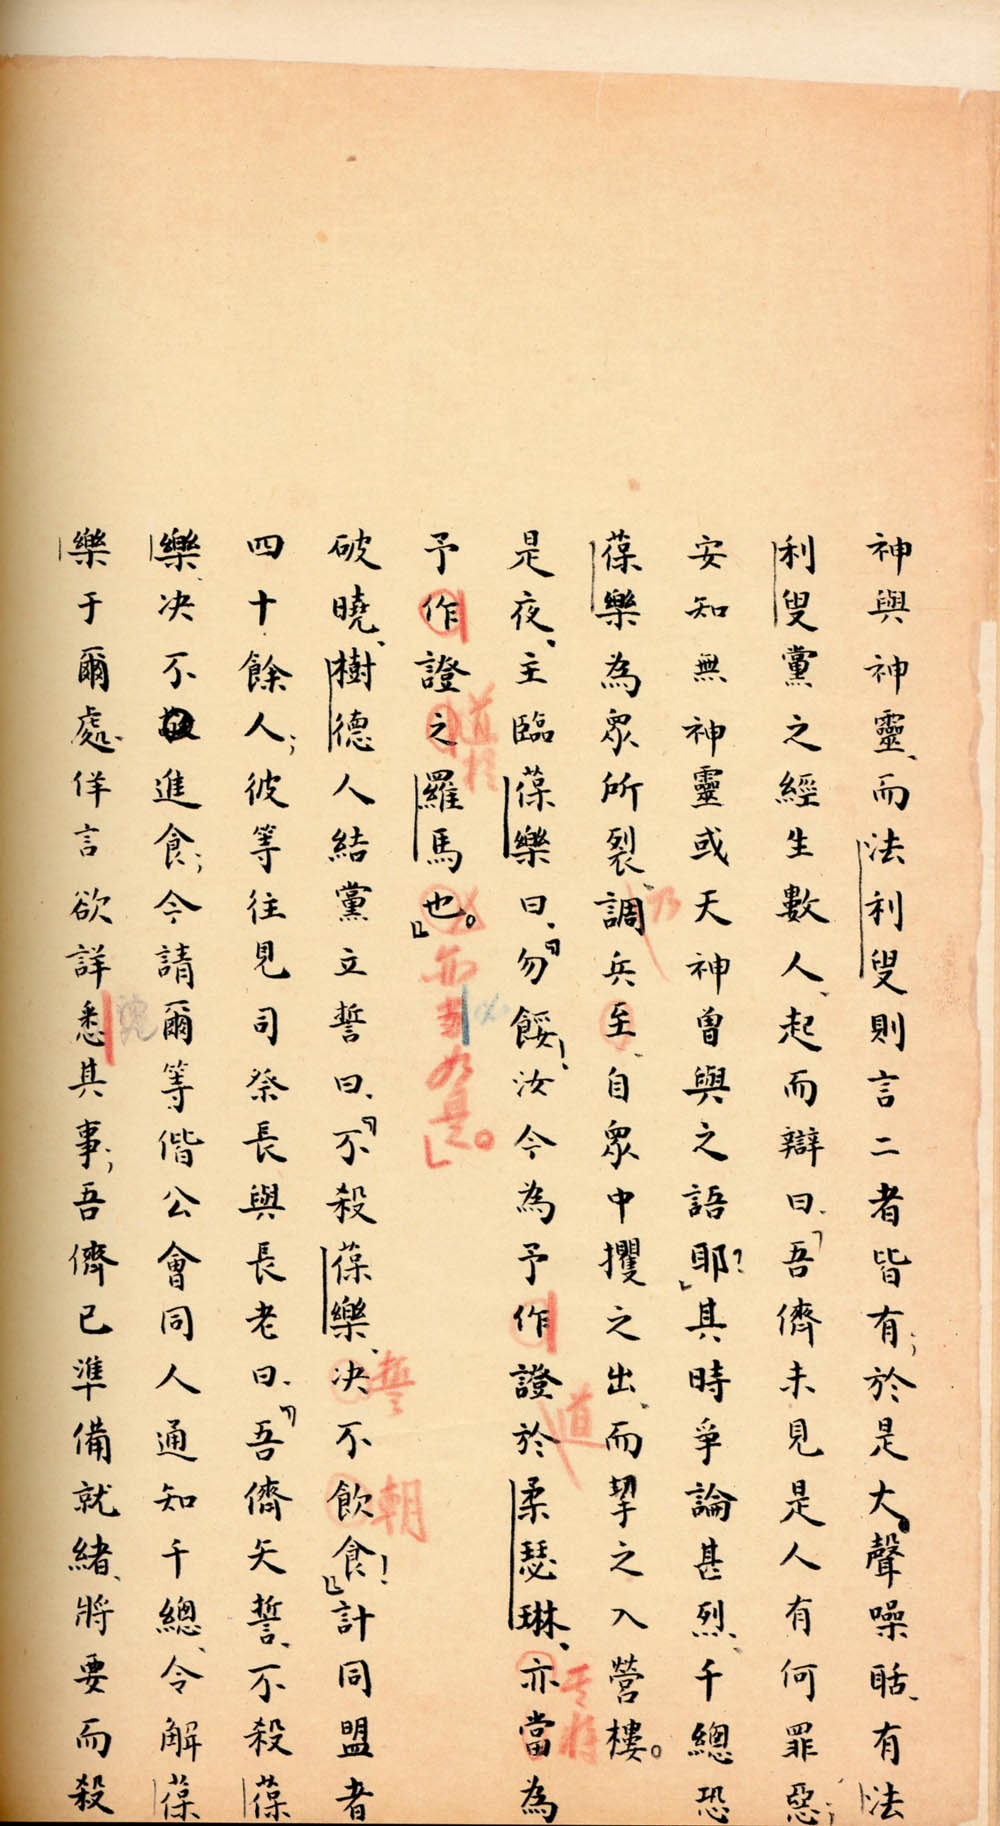 神與神靈、而法利叟則言二者皆有；於是大聲噪聒、有法
利叟黨之經生數人、起而辯曰、「吾儕未見是人有何罪惡；
安知無神靈或天神曾與之語耶？」其時爭論甚烈、千總恐
葆樂為眾所裂、調兵至、自眾中攫之出、而挈之入營樓。
乃
是夜、主臨葆樂曰、「勿餒！汝今為予作證於柔瑟琳、亦當為
道
予作證之羅馬也。」
道於
亦
九是。」
破曉、樹德人結黨立誓曰、「不殺葆樂、决不飲食！」計同盟者
誓
朝
四十餘人；彼等往見司祭長與長老曰、「吾儕矢誓、不殺葆
樂、决不進食；今請爾等偕公會同人通知千總、令解葆
樂于爾處、佯言欲詳悉其事；吾儕已準備就緒、將要而殺